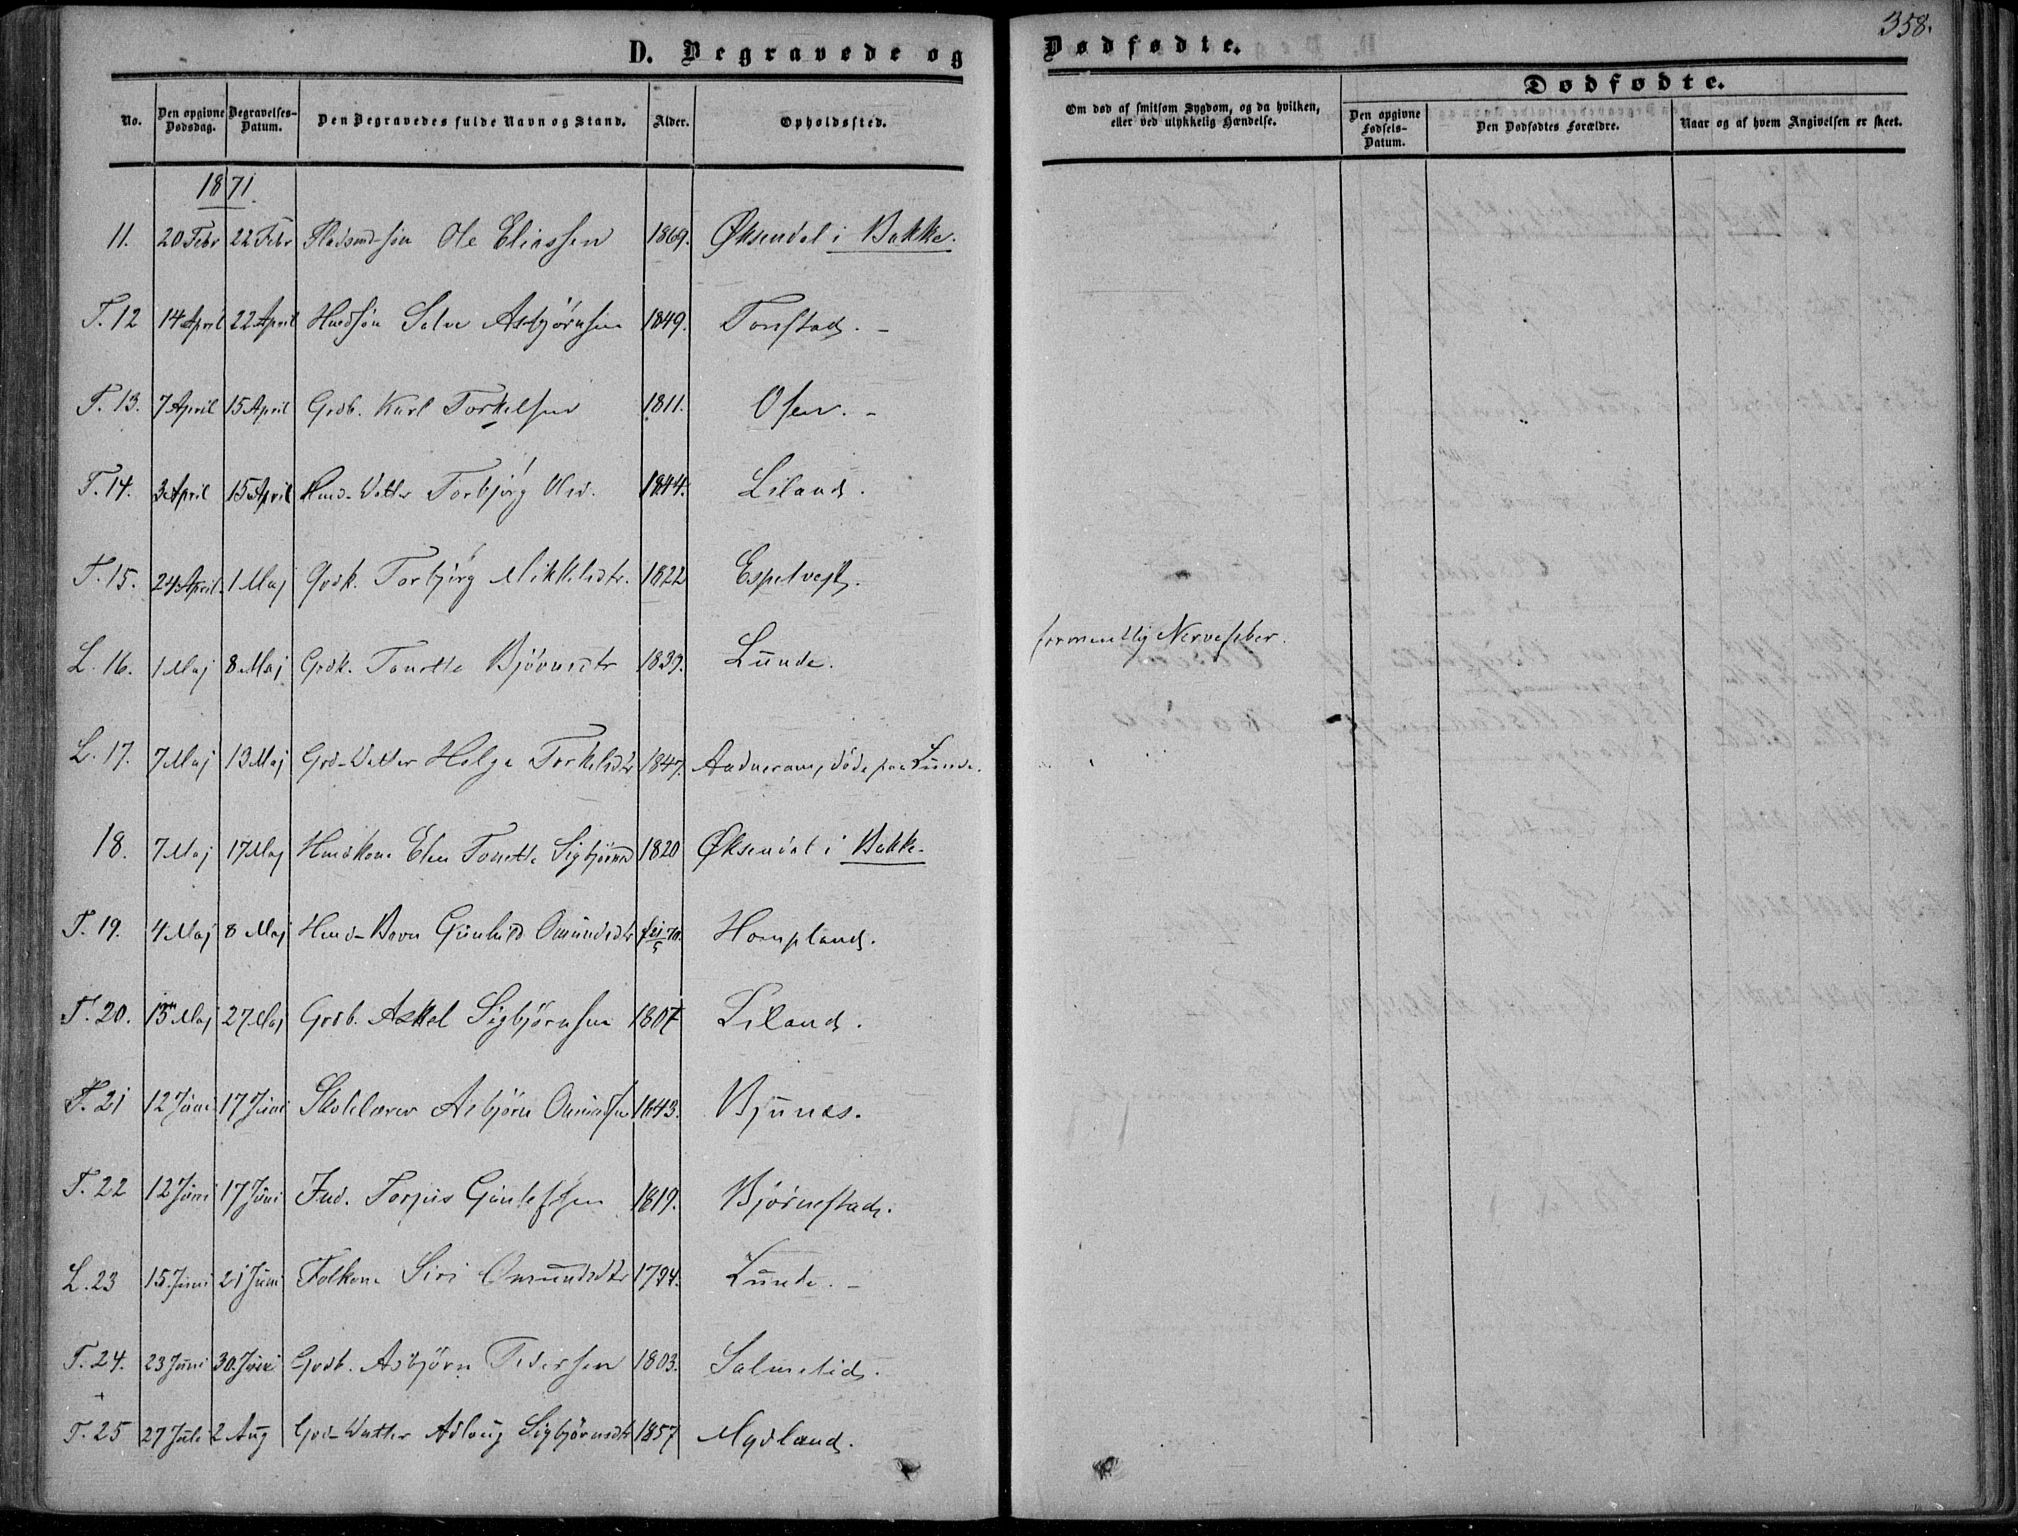 358.
D. Begravede og Dødfødte.
Dødfødte.
No. Den opgivne Dødsdag. Begravelses-Datum. Den Begravedes fulde Navn og Stand. Alder. Opholdssted. Om død af smitsom Sygdom, og da hvilken, eller ved ulykkelig Hændelse. Den opgivne Fødsels-Datum. Den Dødfødtes Forældre. Naar og af hvem Angivelsen er skeet.
1871.
11. 20 Febr 22 Febr Pladsmd-søn Ole Eliassen 1869. Øksendal i Bakke.
T. 12 14 April 22 April Husmdsøn Salve Asbjørnsen 1849. Tonstad. -
T. 13. 7 April 15 April Grdb. Karl Torkelsen 1811. Osen. -
T. 14. 3 April 15 April Datter Torbjørg Olsd. 1844. Liland.
T. 15. 24 April. 1 Maj Grdk. Torbjørg Mikkelsdtr. 1822 Espetvejt.
L. 16. 1 Maj 8 Maj Grdk. Tonette Bjørnsdtr 1839. Lunde. formentlig Nervefeber.
L. 17. 7 Maj 13 Maj Grd-Datter Helga Torkelsdtr 1847. Aadneram, døde paa Lunde.
18. 7 Maj 17 Maj Hmdskone Elen Tonette Sigbjørnsd 1820 Øksendal i Bakke.
T. 19. 4 Maj 8 Maj Barn Gunhild Omundsdtr Hompland.
T. 20. 15 Maj 27 Maj Grdb. Askel Sigbjørnsen 1807 Liland.
T. 21 12 Juni 17 Juni Skolelærer Asbjørn Omundsen 1843. Bjunes.
T. 22 12 Juni 17 Juni Ind. Torjus Gunlefsen 1819. Bjørnestad.
L. 23 15 Juni 21 Juni Folkone Siri Omundsdtr 1794. Lunde. -
T. 24. 23 Juni 30. Juni Grdb. Asbjørn Pedersen 1803. Salmelid.
T. 25 27 Juli 2 Aug Grd-Datter Adloug Sigbjørnsdtr 1857 Mydland.